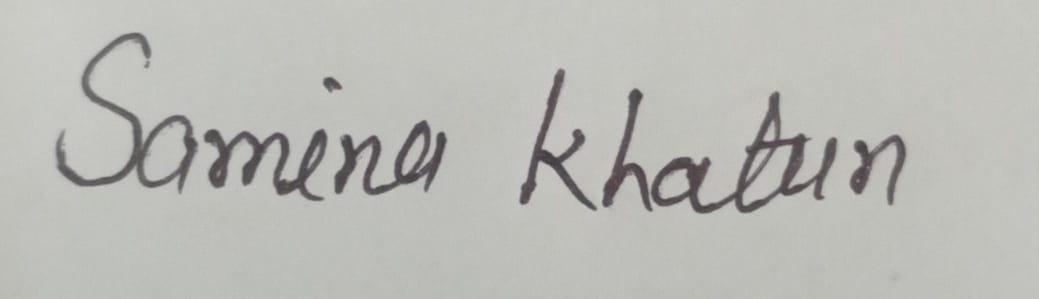 Samina Khatun